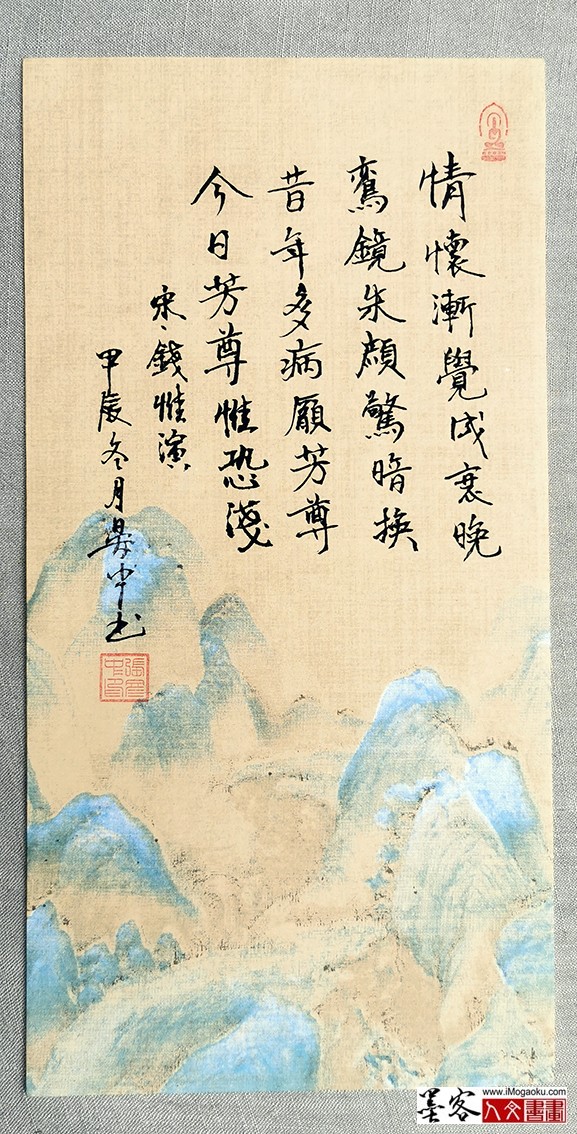 情懷漸覺成衰晚
鸞鏡朱顏驚暗換
昔年多病厭芳尊
今日芳尊惟恐淺
宋錢惟演
甲辰冬月中书
www.iMogaoku.com
墨客人文書畫